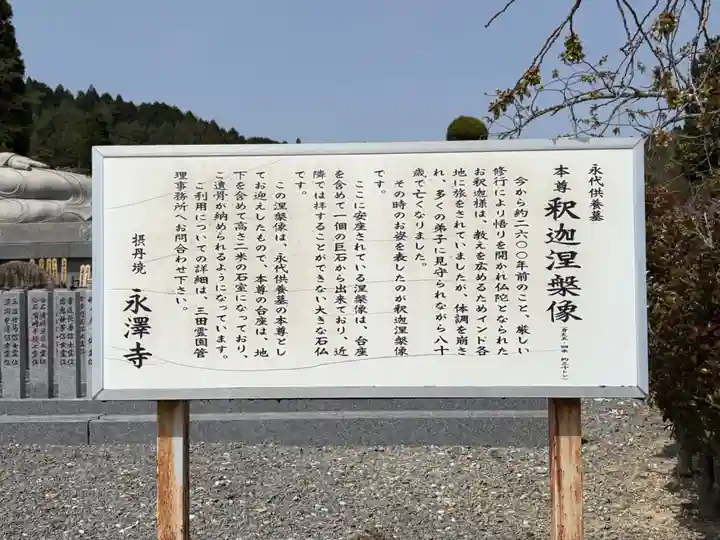 永代供養墓
本尊 釈迦涅槃像
今から約二六〇〇年前のこと、厳しい
修行により悟りを開かれ仏陀となられた
お釈迦様は、教えを広めるためインド各
地に旅をされていましたが、体調を崩さ
れ、多くの弟子に見守られながら八十
歳で亡くなりました。
その時のお姿を表したのが釈迦涅槃像
です。
ここに安座されている涅槃像は、台座
を含めて一個の巨石から出来ており、近
隣では拝することができない大きな石仏
です。
この涅槃像は、永代供養墓の本尊とし
てお迎えしたもので、本尊の台座は、地
下を含めて高さ二米の石室になっており、
ご遺骨が納められるようになっています。
ご利用についての詳細は、三田霊園管
理事務所へお問合わせ下さい。
摂丹境 永澤寺